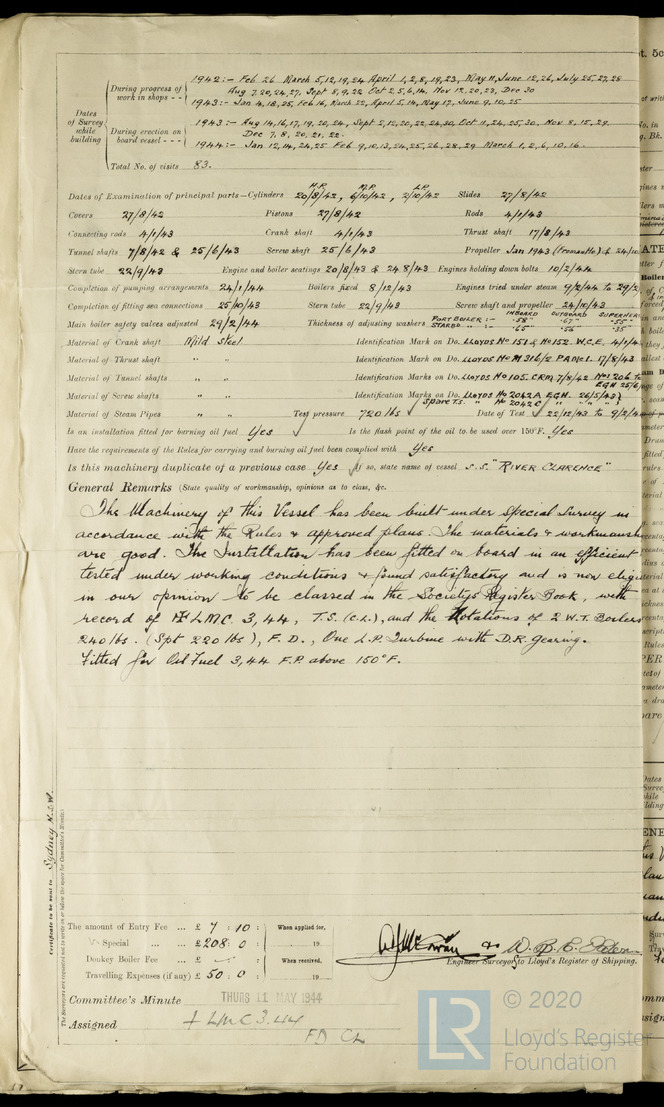 1942:- Feb 26 March 5,12,19,24 April 1,2,8,19,23, May 11, June 12,26, July 25,27,28
During progress of work in shops - -
Aug 7,20,24,27, Sept 8,9,22 Oct 2,5,6,14, Nov 12,20,23, Dec 30
1943:- Jan 4,18,25, Feb 16, March 22, April 5,14, May 17, June 9,10,25
Dates of Survey while building
During erection on board vessel - - -
1943:- Aug 14,16,17,19,20,24, Sept 5,12,20,22,24,30, Oct 11,24,25,30. Nov 8,15,29.
Dec 7,8,20,21,22.
1944:- Jan 12,14,24,25 Feb 9,10,13,24,25,26,28,29 March 1,2,6,10,16.
Total No. of visits 83.
H.P. M.P. L.P.
Dates of Examination of principal parts—Cylinders 20/8/42, 6/10/42, 2/10/42 Slides 27/8/42
Covers 27/8/42 Pistons 27/8/42 Rods 4/1/43
Connecting rods 4/1/43 Crank shaft 4/1/43 Thrust shaft 17/8/43
Tunnel shafts 7/8/42 & 25/6/43 Screw shaft 25/6/43 Propeller Jan 1943 & 24/10
Stern tube 22/9/43 Engine and boiler seatings 20/8/43 & 24/8/43 Engines holding down bolts 10/2/44
Completion of pumping arrangements 24/1/44 Boilers fixed 8/12/43 Engines tried under steam 9/2/44 to 29/2
Completion of fitting sea connections 25/10/43 Stern tube 22/9/43 Screw shaft and propeller 24/10/43
INBOARD OUTBOARD SUPERHEATER
Main boiler safety valves adjusted 29/2/44 Thickness of adjusting washers PORT BOILER:- .58" .67" .55"
STARBD " :- .65" .56 .35"
Material of Crank shaft Mild Steel Identification Mark on Do. LLOYDS No 151 & No 152. W.C.E. 4/1/4
Material of Thrust shaft " " Identification Mark on Do. LLOYDS No M 316/2 17/8/43
Material of Tunnel shafts " " Identification Marks on Do. LLOYDS No 105. CRM 7/8/42 No 1206 to
EGH 25/6
Material of Screw shafts " " Identification Marks on Do. LLOYDS No 2042A EGH. 26/5/43
SPARE T.S. " No 2042C " "
Material of Steam Pipes " " Test pressure 720 lbs ✓ Date of Test ✓ 22/12/43 to 9/2/4
Is an installation fitted for burning oil fuel Yes ✓ Is the flash point of the oil to be used over 150°F. Yes
Have the requirements of the Rules for carrying and burning oil fuel been complied with Yes
Is this machinery duplicate of a previous case Yes ✓ If so, state name of vessel S.S. "RIVER CLARENCE"
General Remarks (State quality of workmanship, opinions as to class, &c.
The Machinery of this Vessel has been built under Special Survey in
accordance with the Rules & approved plans. The materials & workmansh
are good. The Installation has been fitted on board in an efficient
tested under working conditions & found satisfactory and is now eligi
in our opinion to be classed in the Societys Register Book, with
record of ✠ LMC 3,44, T.S. (C.L.), and the Notations of 2 W.T. Boilers
240 lbs. (Spt 220 lbs), F.D., One L.P. Turbine with D.R. Gearing.
Fitted for Oil Fuel 3,44 F.P. above 150°F.
Certificate to be sent to Sydney N.S.W.
The Surveyors are requested not to write on or below the space for Committee's Minute.
The amount of Entry Fee ... £ 7 : 10 : When applied for,
Special ... ... £ 208 : 0 : 19
Donkey Boiler Fee ... £ - : : When received,
Travelling Expenses (if any) £ 50 : 0 : 19
Engineer Surveyors to Lloyd's Register of Shipping.
Committee's Minute THURS 11 MAY 1944
Assigned + LMC 3.44
FD CL
LR © 2020
Lloyd's Register
Foundation